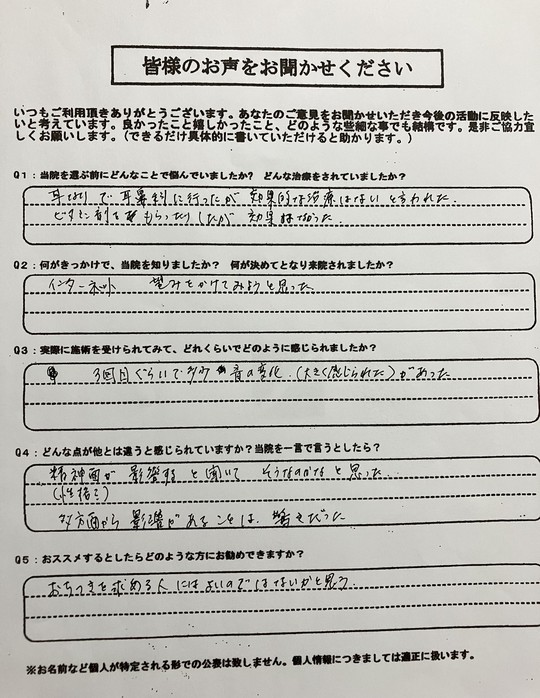 皆様のお声をお聞かせください
いつもご利用頂きありがとうございます。あなたのご意見をお聞かせいただき今後の活動に反映した
いと考えています。良かったこと嬉しかったこと、どのような些細な事でも結構です。是非ご協力宜
しくお願いします。(できるだけ具体的に書いていただけると助かります。)
Q1:当院を選ぶ前にどんなことで悩んでいましたか? どんな治療をされていましたか?
耳なりで耳鼻科に行ったが 効果的な治療はないと言われた。
ビタミン剤をもらったりしたが 効果はなかった。
Q2:何がきっかけで、当院を知りましたか? 何が決めてとなり来院されましたか?
インターネット 望みをかけてみようと思った
Q3:実際に施術を受けられてみて、どれくらいでどのように感じられましたか?
3回目ぐらいで多少 音の変化(大きく感じられた)があった
Q4:どんな点が他とは違うと感じられていますか?当院を一言で言うとしたら?
精神面が影響すると聞いて そうなのかなと思った。
(性格も)
多方面から影響があることは、驚きだった
Q5:おススメするとしたらどのような方にお勧めできますか?
おちつきを求める人にはよいのではないかと思う
※お名前など個人が特定される形での公表は致しません。個人情報につきましては適正に扱います。